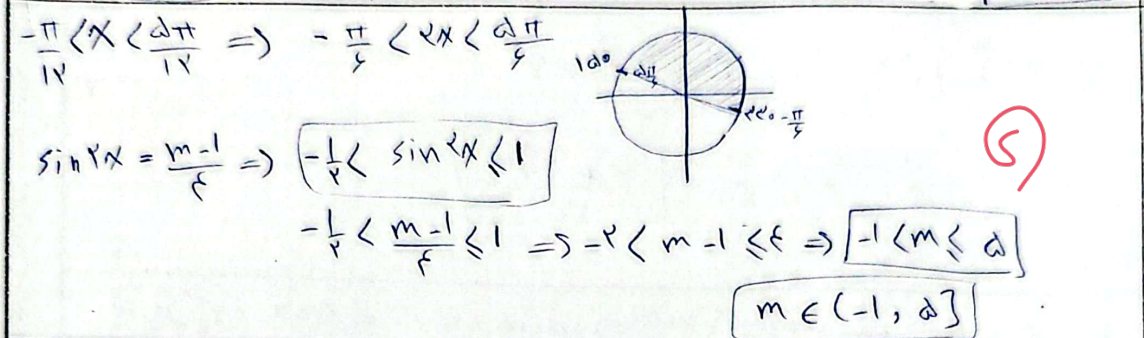 -π/۱۲ < x < ۵π/۱۲ => -π/۶ < ۲x < ۵π/۶
۱۵۰ ۵π/۶
۳۳۰ -π/۶
sin۲x = m-۱/۴ => -۱/۲ < sin۲x ≤ ۱
-۱/۲ < m-۱/۴ ≤ ۱ => -۲ < m-۱ ≤ ۴ => -۱ < m ≤ ۵
m ∈ (-۱, ۵]